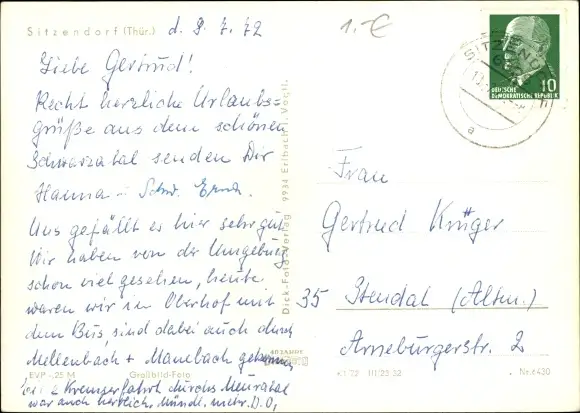 Sitzendorf (Thür.)
d. 9. 7. 72
1.-€
Liebe Gertrud!
Recht herzliche Urlaubs=
grüße aus dem schönen
Schwarzatal senden Dir
Hanna u. Schw. Erna.
Uns gefällt es hier sehr gut
Wir haben von der Umgebung
schon viel gesehen, heute
waren wir in Oberhof mit
dem Bus, sind dabei auch durch
Mellenbach + Manebach gekommen,
Kremserfahrt durchs
war auch herrlich, mündl. mehr. D. O,
EVP -,25 M
Großbild-Foto
Dick-Foto-Verlag 9934 Erlbach i. Vogtl.
SITZENDORF
a
10
DEUTSCHE
DEMOKRATISCHE REPUBLIK
Frau
Gertrud Krüger
35 Stendal (Altm.)
Arneburgerstr. 2
K1/72 III/22 32
Nr. 4430